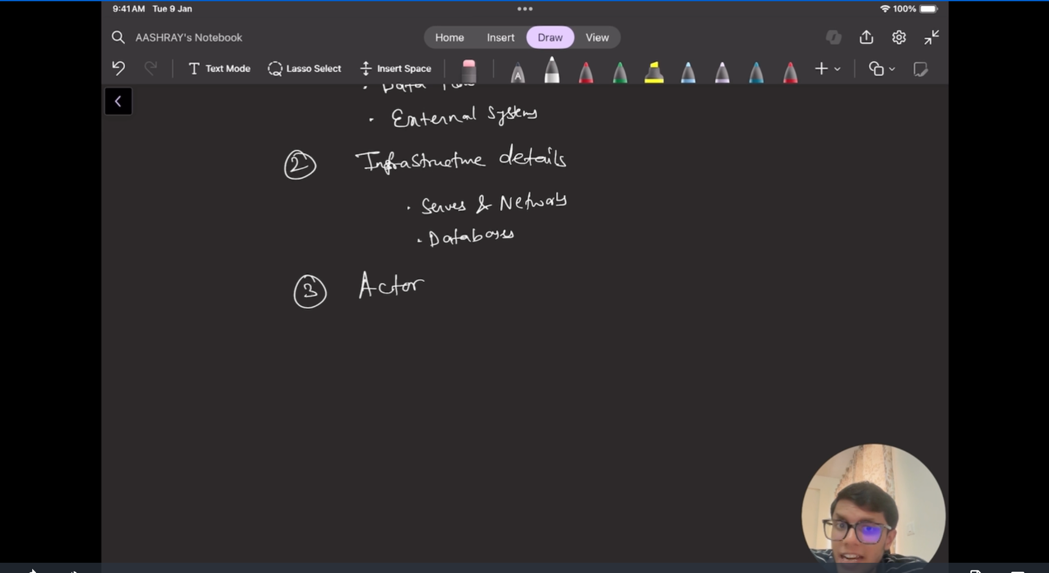 9:41AM Tue 9 Jan
100%
AASHRAY's Notebook
Home Insert Draw View
T Text Mode Lasso Select Insert Space
A
· Data Flow
· External Systems
② Infrastructure details
· Serves & Network
· Databases
③ Actor